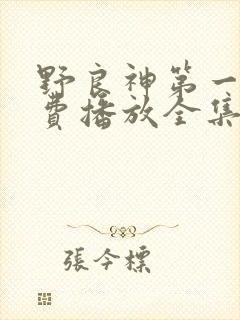 野良神第一
費播放全集
張今標